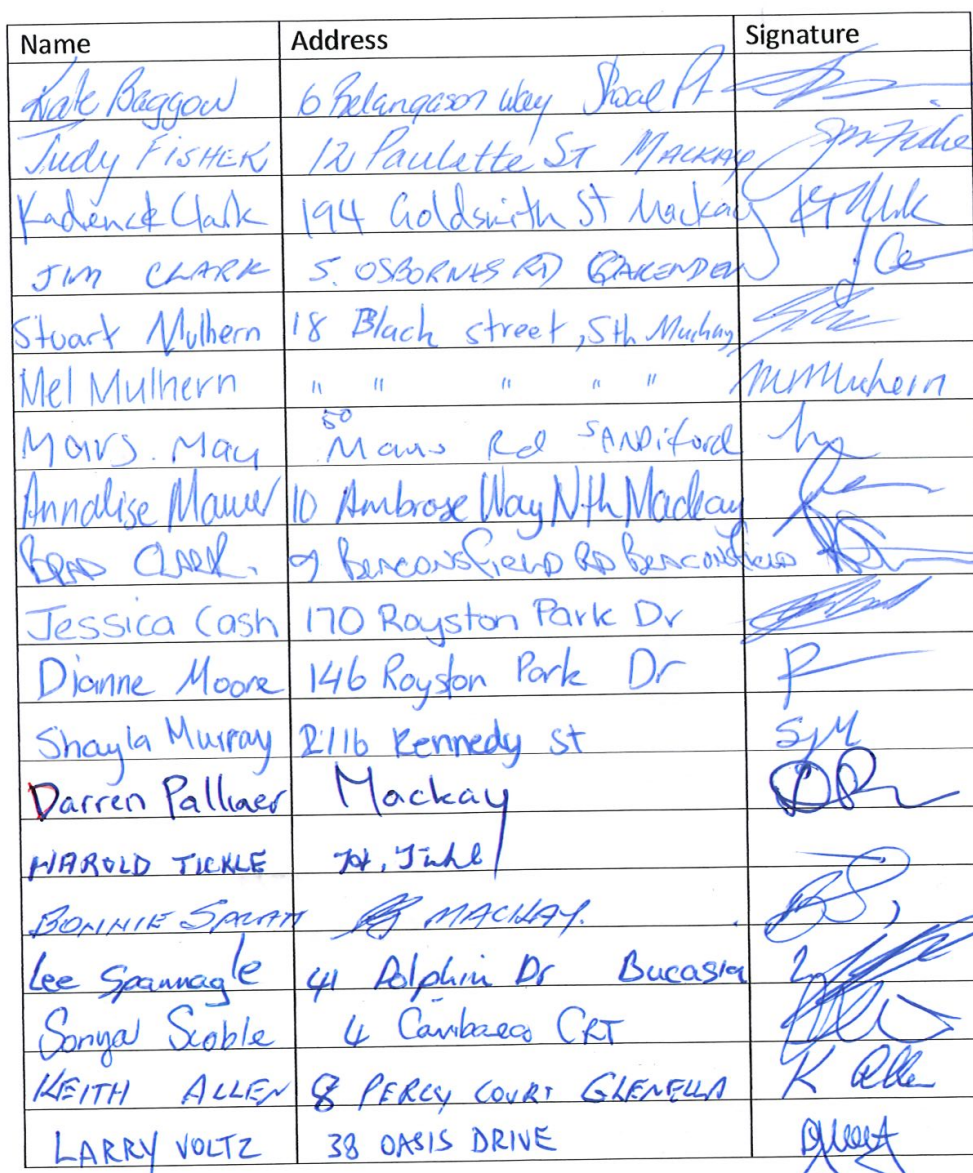 Name Address Signature
Kate Baggow 6 way Shoal Pt
Judy FISHER 12 Paulette ST MACKAY
Clark 194 Goldsmith St Mackay
JIM CLARK 5. OSBORNES RD
Stuart Mulhern 18 Black street, Sth Mackay
Mel Mulhern " " " " " MMulhern
50
May Rd SANDiford
Annalise Maurer 10 Ambrose Way Nth Mackay
BRAD CLARK. 9 BEACONSFIELD RD BEACONSFIELD
Jessica Cash 170 Royston Park Dr
Dianne Moore 146 Royston Park Dr
Shayla Murray 2/16 Kennedy st SJM
Darren Mackay
HAROLD TICKLE
BONNIE MACKAY.
Lee Spannagle 41 Dolphin Dr Bucasia
Sonya Scoble 4 CRT
KEITH ALLEN 8 PERCY COURT GLENELLA K Allen
LARRY VOLTZ 38 OASIS DRIVE